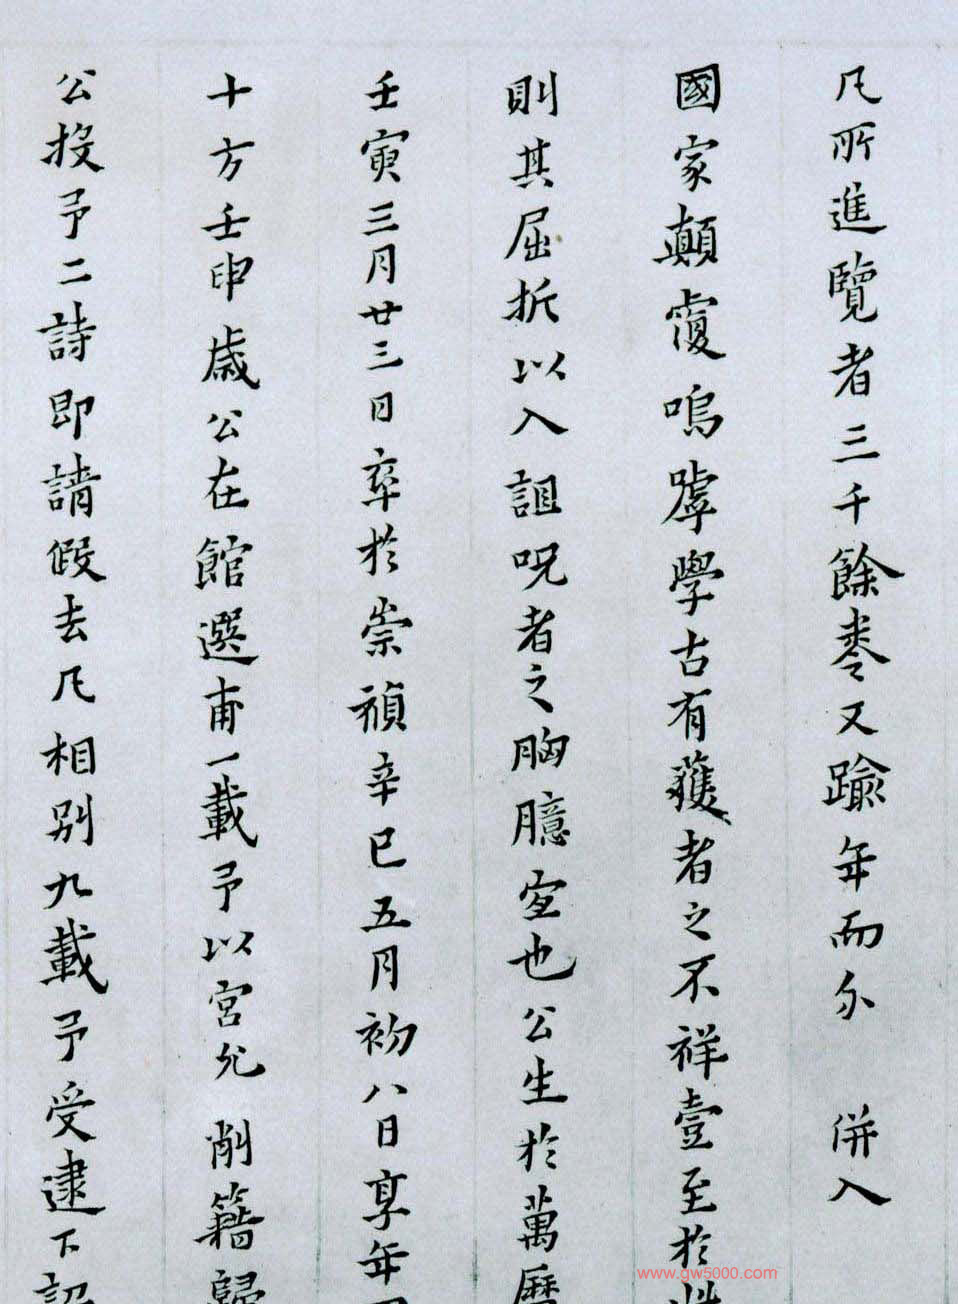 凡所進覽者三千餘卷又踰年而分 併入
國家顛覆嗚嘑學古有獲者之不祥壹至於
則其屈折以入詛呪者之胸臆宜也公生於萬曆
壬寅三月廿三日卒於崇禎辛巳五月初八日享年四
十方壬申歲公在館選甫一載予以宮允 削籍歸
公投予二詩即請假去凡相別九載予受逮下詔
www.gw5000.com